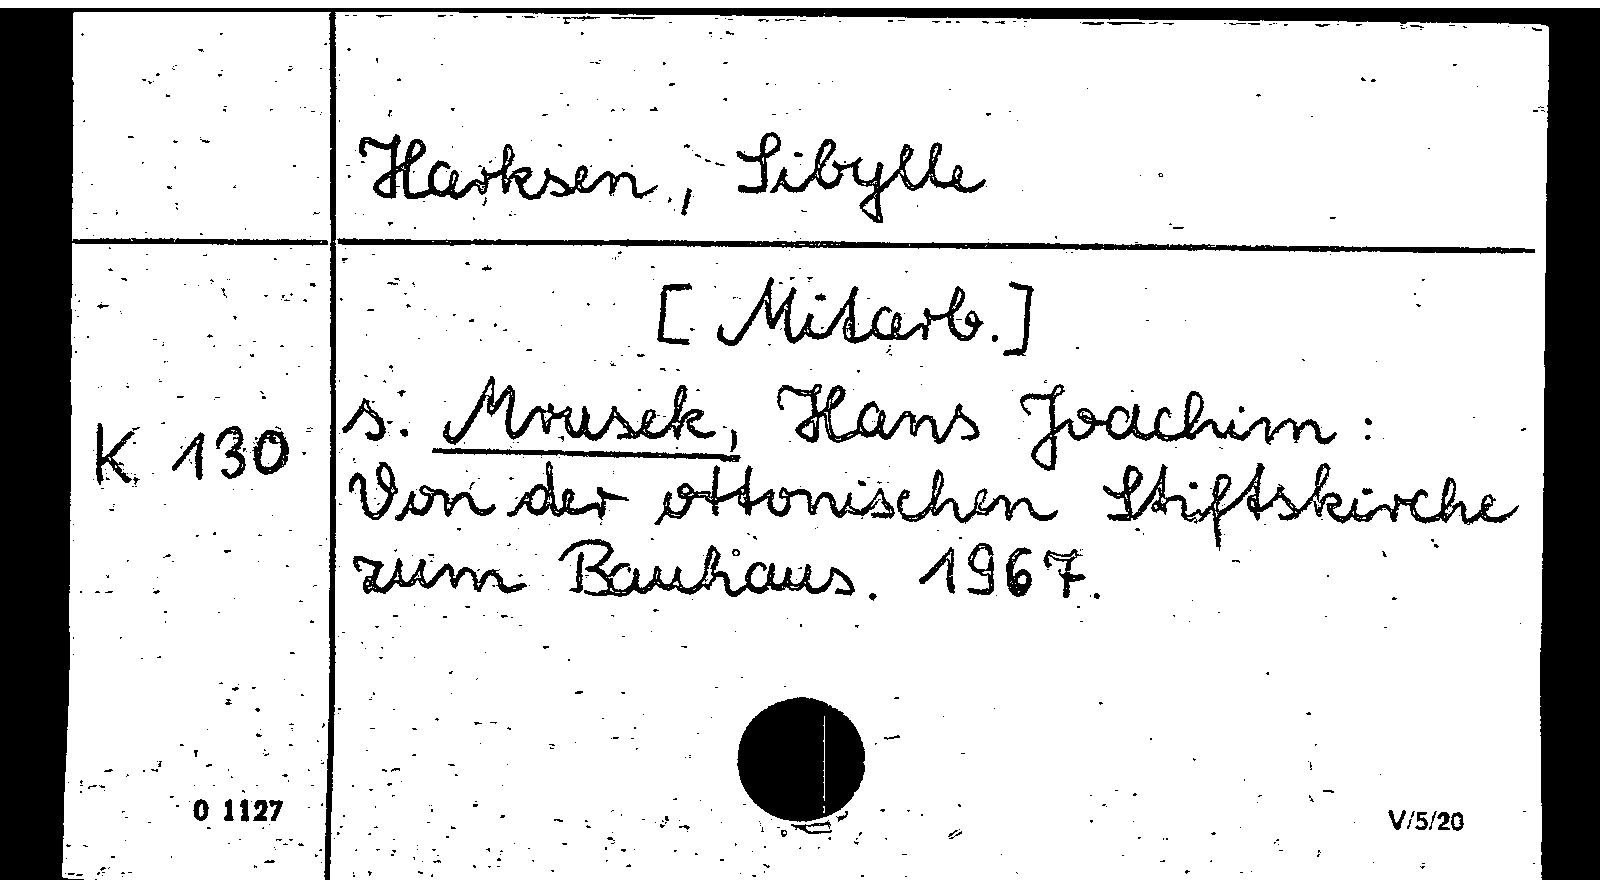 Harksen, Sibylle
[Mitarb.]
K 130
s. Mrusek, Hans Joachim:
Von der ottonischen Stiftskirche
zum Bauhaus. 1967.
O 1127
V/5/20